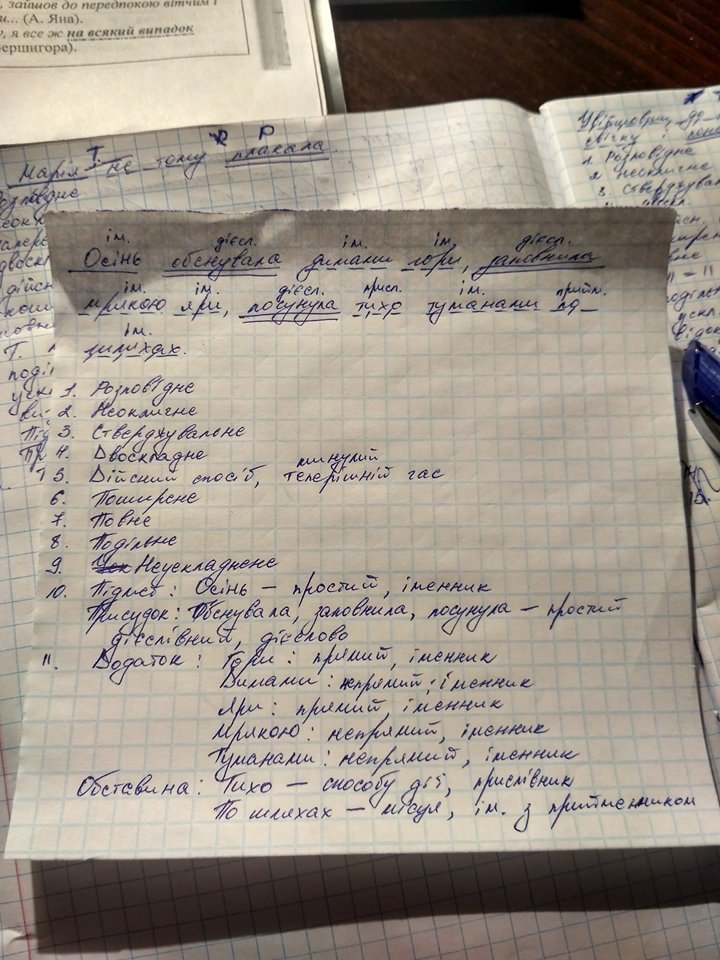 зайшов до передпокою вітчим і
и... (А. Яна).
, я все ж на всякий випадок
ершигора).
Т. Р
Марія не тому плакала.
1. Розповідне
2. Неокличне
3. Стверджувал
ім. дієсл. ім. ім. дієсл.
Осінь обснувала димами гори, заповнила
ім. ім. дієсл. присл. ім. прийм.
мрякою яри, посунула тихо туманами по
ім.
шляхах.
1. Розповідне
2. Неокличне
3. Стверджувальне
4. Двоскладне
минулий
5. Дійсний спосіб, теперішній час
6. Поширене
7. Повне
8. Подільне
9. Неускладнене
10. Підмет: Осінь – простий, іменник
Присудок: Обснувала, заповнила, посунула – простий
дієслівний, дієслово
11. Додаток: Гори: прямий, іменник
Димами: непрямий, іменник
Яри: прямий, іменник
Мрякою: непрямий, іменник
Туманами: непрямий, іменник
Обставина: Тихо – способу дії, прислівник
По шляхах – місця, ім. з прийменником